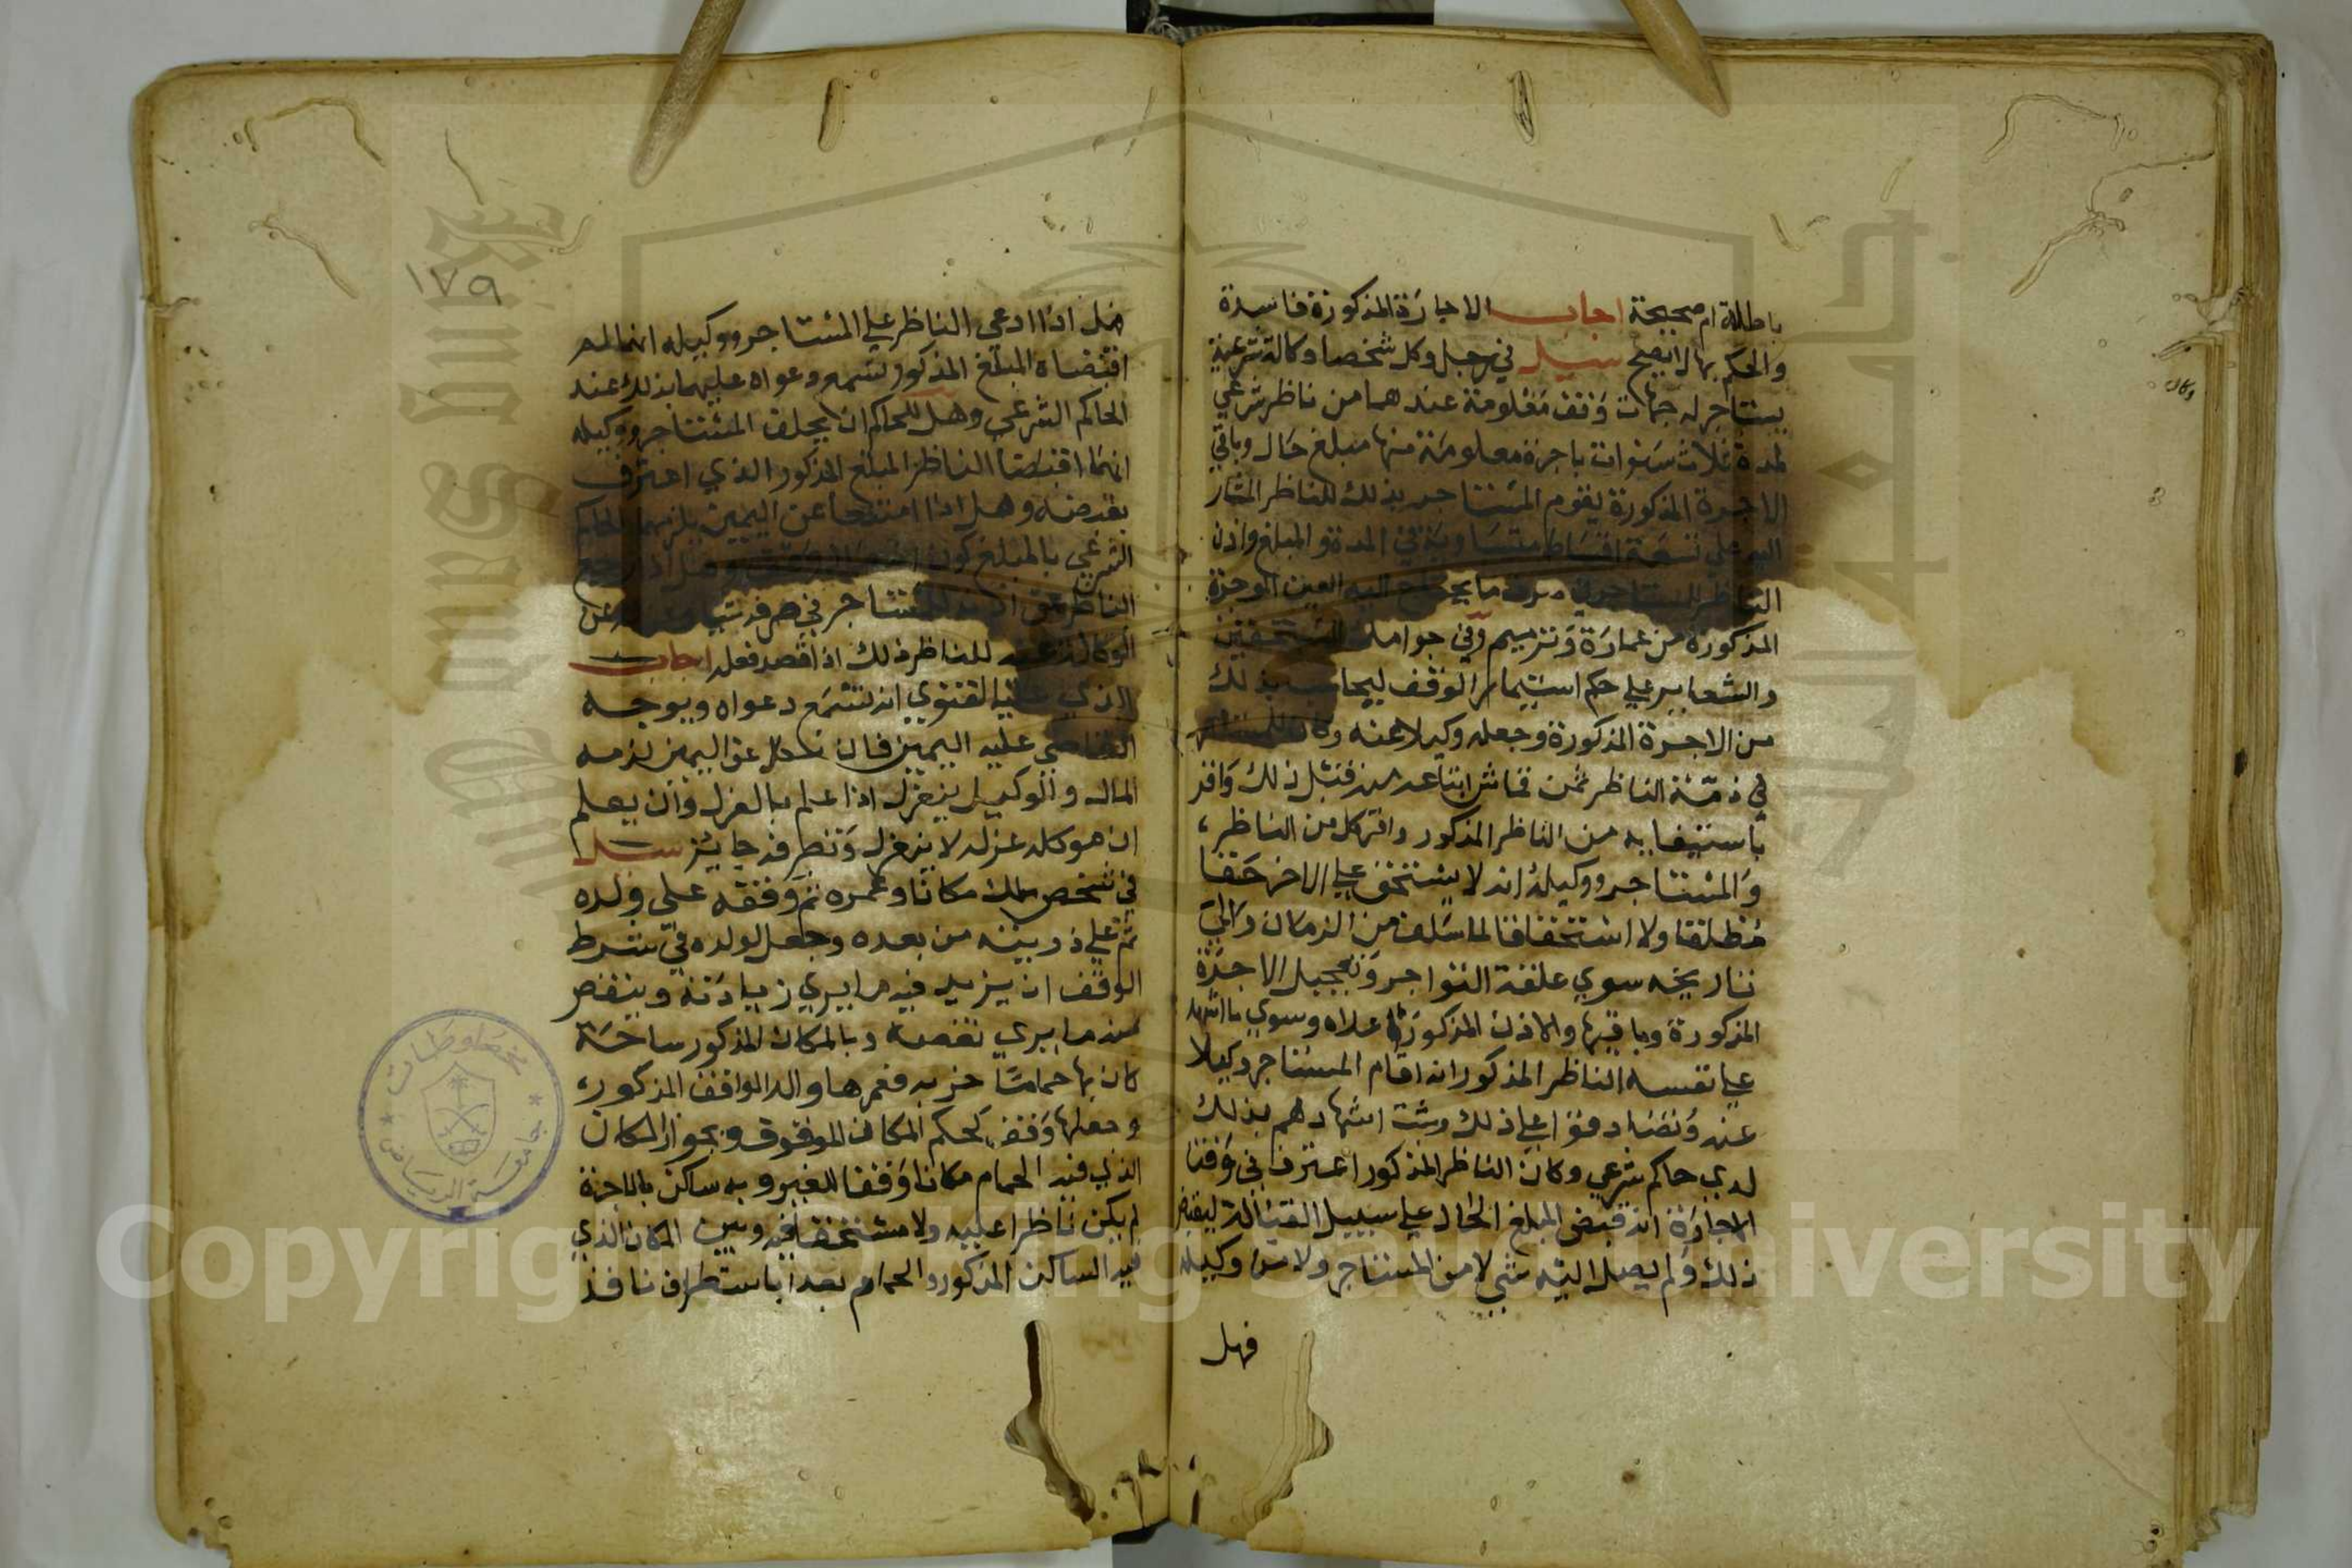 باطلة ام صحيحة اجاب الاجارة المذكورة فاسدة
والحكم بها لا يصح سيل في رجل وكل شخصا وكالة شرعية
يستاجر له جهات وقف معلومة عندهما من ناظر شرعي
لمدة ثلاث سنوات باجرة معلومة منها مبلغ حال وباقي
الاجرة المذكورة يقوم المستاجر بذلك للناظر المشار
اليه علي تسعة اقساط متساوية في المدة والمبلغ واذن
الناظر للمستاجر في صرف ما يحتاج اليه العين الموجرة
المذكورة من عمارة وترميم وفي جوامك المستحقين
والشعاير علي حكم استيمار الوقف ليحاسبه بذلك
من الاجرة المذكورة وجعله وكيلا عنه وكان للمستاجر
في ذمة الناظر ثمن قماش ابتاعه منه قبل ذلك واقر
باستيفايه من الناظر المذكور واقر كل من الناظر
والمستاجر ووكيله انه لا يستحق علي الاخر حقا
مطلقا ولا استحقاقا لما سلف من الزمان والي
تاريخه سوي علقة التواجر وتعجيل الاجرة
المذكورة وباقيها والاذن المذكور اعلاه وسوي ما اشهد
علي نفسه الناظر المذكور انه اقام المستاجر وكيلا
عنه وتصادقوا علي ذلك وثبت اشهادهم بذلك
لدي حاكم شرعي وكان الناظر المذكور اعترف في وقت
الاجارة انه قبض المبلغ الحال علي سبيل القبالة ليقبض
ذلك ولم يصل اليه شي لا من المستاجر ولا من وكيله
فهل
١٧٩
فهل اذا ادعي الناظر علي المستاجر ووكيله انهما لم
اقبضاه المبلغ المذكور تسمع دعواه عليهما بذلك عند
الحاكم الشرعي وهل للحاكم ان يحلف المستاجر ووكيله
انهما اقبضا الناظر المبلغ المذكور الذي اعترف
بقبضه وهل اذا امتنعا عن اليمين يلزمهما الحاكم
الشرعي بالمبلغ كون وهل اذا رجع
الناظر عن اذنه للمستاجر في صرف شي عن
الوكالة للناظر ذلك اذا قصد فعله اجاب
الذي عليه الفتوي انه تسمع دعواه ويوجه
القاضي عليه اليمين فان نكل عن اليمين لزمه
المال والوكيل ينعزل اذا علم بالعزل وان يعلم
ان موكله عزله لا ينعزل وتصرفه جايز سيل
في شخص ملك مكانا وعمره ثم وقفه علي ولده
ثم علي ذريته من بعده وجعل لولده في شرط
الوقف ان يزيد فيه ما يري زيادته وينقص
منه ما يري نقصه وبالمكان المذكور ساحة
كان بها حماما خربه فعمرها والد الواقف المذكور
وجعلها وقفا كحكم المكان الموقوف وبجوار المكان
الذي فيه الحمام مكانا وقفا للغير وبه ساكن بالاجرة
لم يكن ناظرا عليه ولا مستحقا فيه وبين المكان الذي
فيه الساكن المذكور والحمام بعدا باستطراق نافذ
مخطوطات
جامعة الرياض
Copyright © King Saud University
King Saud University